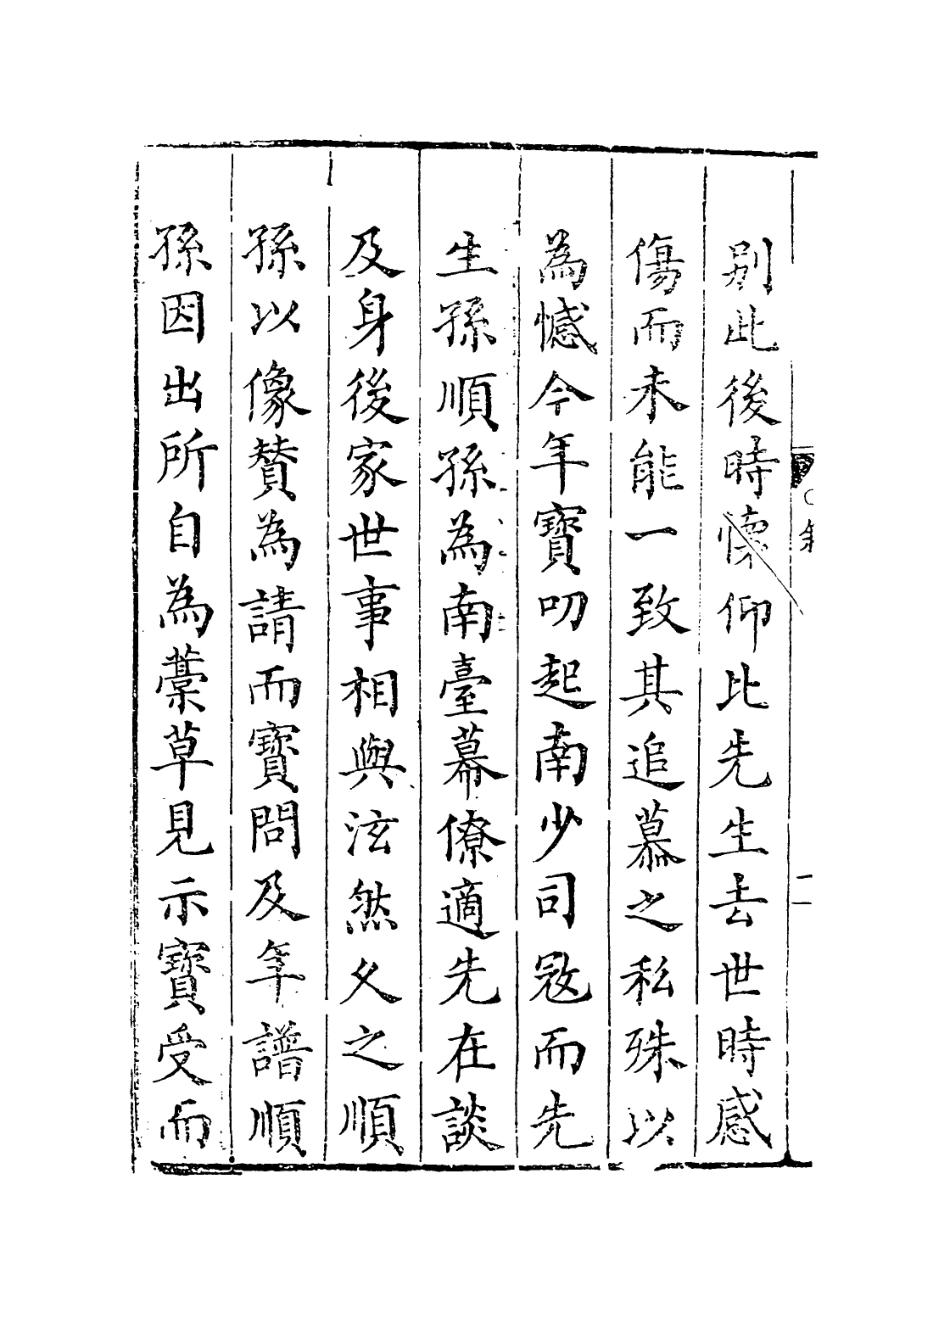 別此後時懐仰比先生去世時感
傷而未能一致其追慕之私殊以
為憾今年寳叨起南少司㓂而先
生孫順孫為南臺幕僚適先在談
及身後家世事相與泫然久之順
孫以像賛為請而寳問及年譜順
孫因出所自為藁草見示寳受而